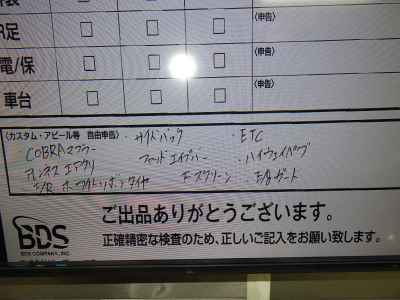 R足 □ □ □ 〈申告〉
電/保 □ □ □ 〈申告〉
車台 □ □ □ 〈申告〉
〈カスタム・アピール等 自由申告〉 ・サイドバック ・ETC
COBRAマフラー ・ハイウェイペグ
エアクリ
F/R ホワイトリボンタイヤ F・スクリーン
ご出品ありがとうございます。
BDS
BDS COMPANY, INC.
正確精密な検査のため、正しいご記入をお願い致します。